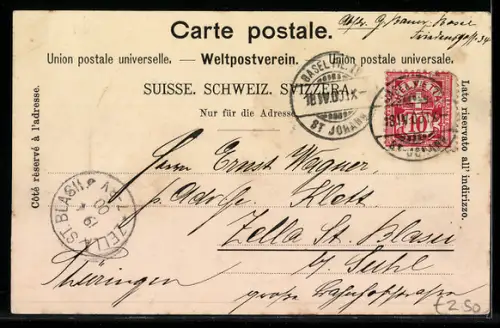 Carte postale.
Absr. G. Bauer Basel
Friedensgasse 34
Union postale universelle. — Weltpostverein. — Union postale universale.
SUISSE. SCHWEIZ. SVIZZERA.
Nur für die Adresse
Côté réservé à l'adresse.
Lato riservato all' indirizzo.
BASEL
ST. JOHANN
HELVETIA
10
Herrn Ernst Wagner
p. Adr. Klett
Zella St. Blasii
b/ Suhl
große Bahnhofstraße
Thüringen
ZELLA ST BLASII
19
00
7-8V
£2.50